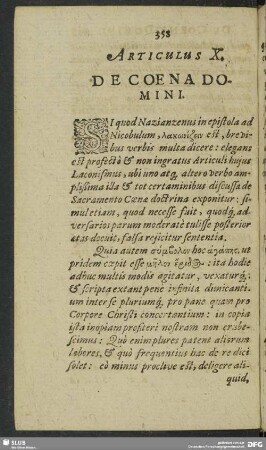 358
ARTICULUS X.
DE COENA DO-
MINI.
SI quod Nazianzenus in epistola ad
Nicobulum, λακωνίζειν est, brevi-
bus verbis multa dicere: elegans
est profectò & non ingratus Articuli hujus
Laconismus, ubi uno atq; altero verbo am-
plissima illa & tot certaminibus discussa de
Sacramento Cœnæ doctrina exponitur: si-
mul etiam, quod necesse fuit, quodq; ad-
versarios parum moderatè tulisse posterior
ætas docuit, falsa rejicitur sententia.
Quia autem σύμβολον hoc ut
pridem cœpit esse μῆλον ἔριδος: ita hodie
adhuc multis modis agitatur, vexaturq;
& scripta extant penè infinita dimicanti-
um inter se plurimq; pro pane quàm pro
Corpore Christi concertantium: in copia
ista inopiam profiteri nostram non erube-
scimus: Quò enim plures patent aliorum
labores, & quò frequentius hac de re dici
solet: eò minus proclive est, deligere ali-
quid,